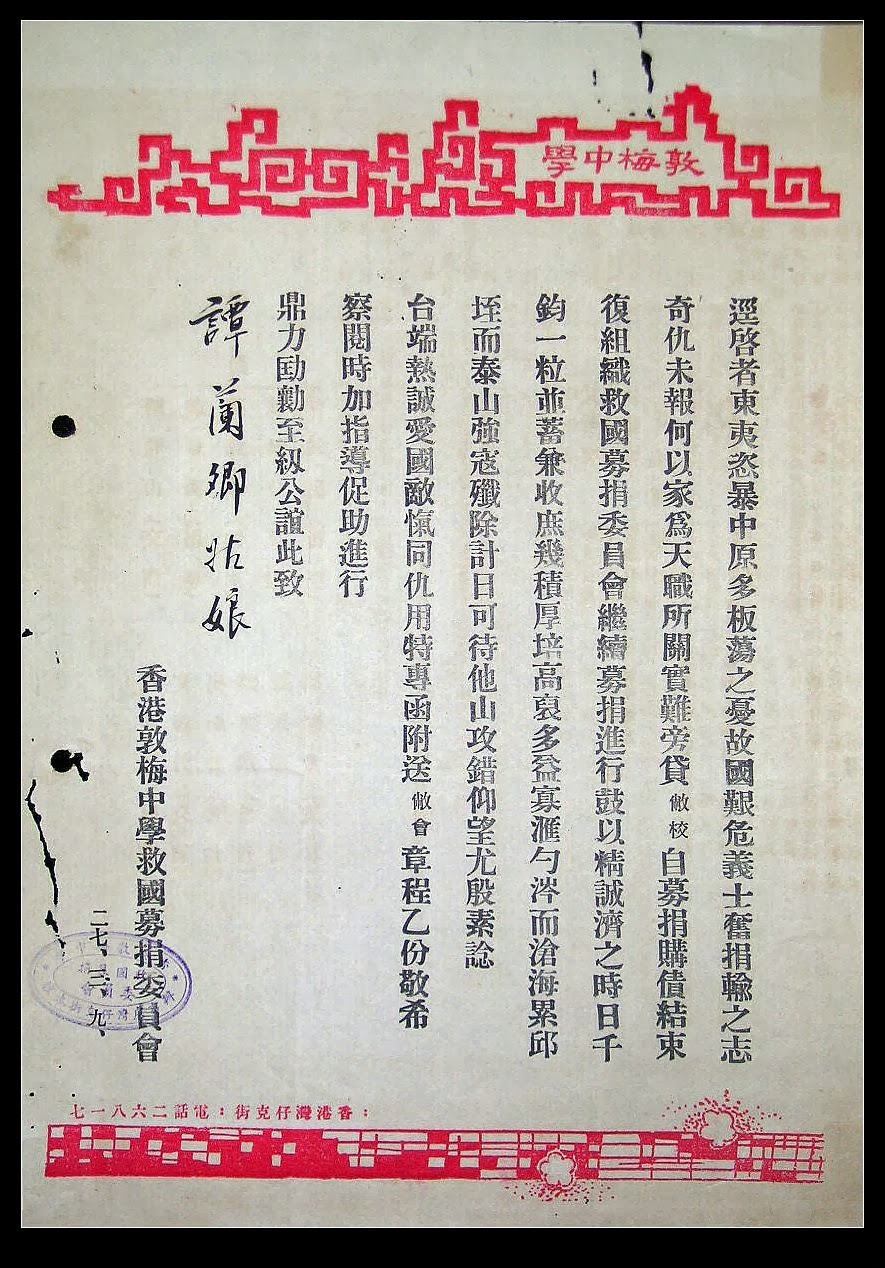 敦梅中學
逕啓者東夷恣暴中原多板蕩之憂故國艱危義士奮捐輸之志
奇仇未報何以家爲天職所關實難旁貸敝校自募捐購債結束
復組織救國募捐委員會繼續募捐進行鼓以精誠濟之時日千
鈞一粒並蓄兼收庶幾積厚培高裒多益寡滙勺涔而滄海累邱
垤而泰山強寇殲除計日可待他山攻錯仰望尤殷素諗
台端熱誠愛國敵愾同仇用特專函附送敝會章程乙份敬希
察閱時加指導促助進行
鼎力劻勷至級公誼此致
譚蘭卿姑娘
香港敦梅中學救國募捐委員會
二七、三、九、
香港灣仔克街：電話二六八一七